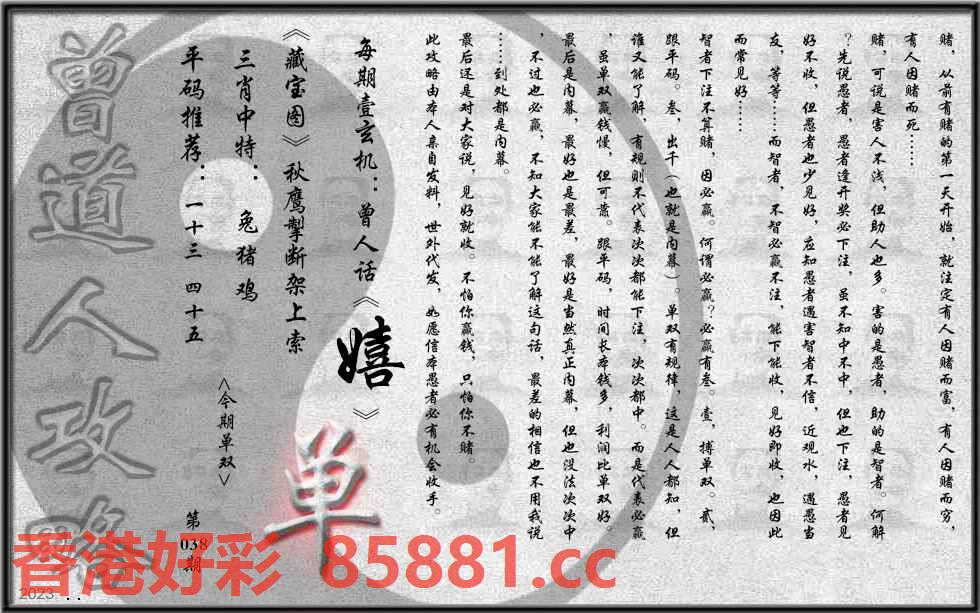 赌，从前有赌的第一天开始，就注定有人因赌而富，有人因赌而穷，
有人因赌而死……
赌，可说是害人不浅，但助人也多。害的是愚者，助的是智者。何解
？先说愚者，愚者逢开奖必下注，虽不知中不中，但也下注，愚者见
好不收，但愚者也少见好，应知愚者遇害智者不信，近观水，遇愚当
友，等等……而智者，不智必赢不注，能下能收，见好即收，也因此
而常见好……
智者下注不算赌，因必赢。何谓必赢？必赢有叁。壹，搏单双。贰，
跟平码。叁，出千（也就是内幕）。单双有规律，这是人人都知，但
谁又能了解，有规则不代表次次都能下注，次次都中。而是代表必赢
，虽单双赢钱慢，但可靠。跟平码，时间长本钱多，利润比单双好。
最后是内幕，最好也是最差，最好是当然真正内幕，但也没法次次中
，不过也必赢，不知大家能不能了解这句话，最差的相信也不用我说
……到处都是内幕。
最后还是对大家说，见好就收。不怕你赢钱，只怕你不赌。
此攻略由本人亲自发料，世外代发，如愿信本愚者必有机会收手。
每期壹玄机：曾人话《嬉》
《藏宝图》秋鹰掣断架上索
三肖中特：兔猪鸡
平码推荐：一十三 四十五
<今期单双>
单
第038期
曾道人攻略
香港好彩 85881.cc
2023